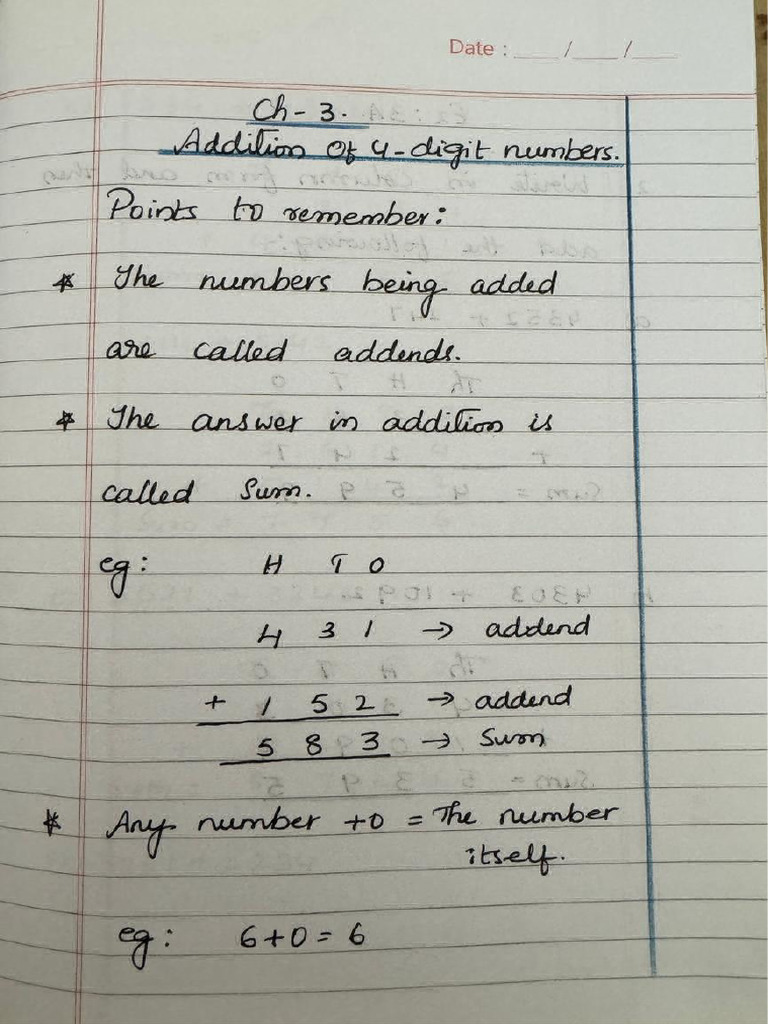 Date : ___/___/___
Ch-3.
Addition of 4-digit numbers.
Points to remember:
* The numbers being added
are called addends.
* The answer in addition is
called Sum.
eg: H T O
4 3 1 → addend
+ 1 5 2 → addend
5 8 3 → Sum
* Any number +0 = The number
itself.
eg: 6+0=6